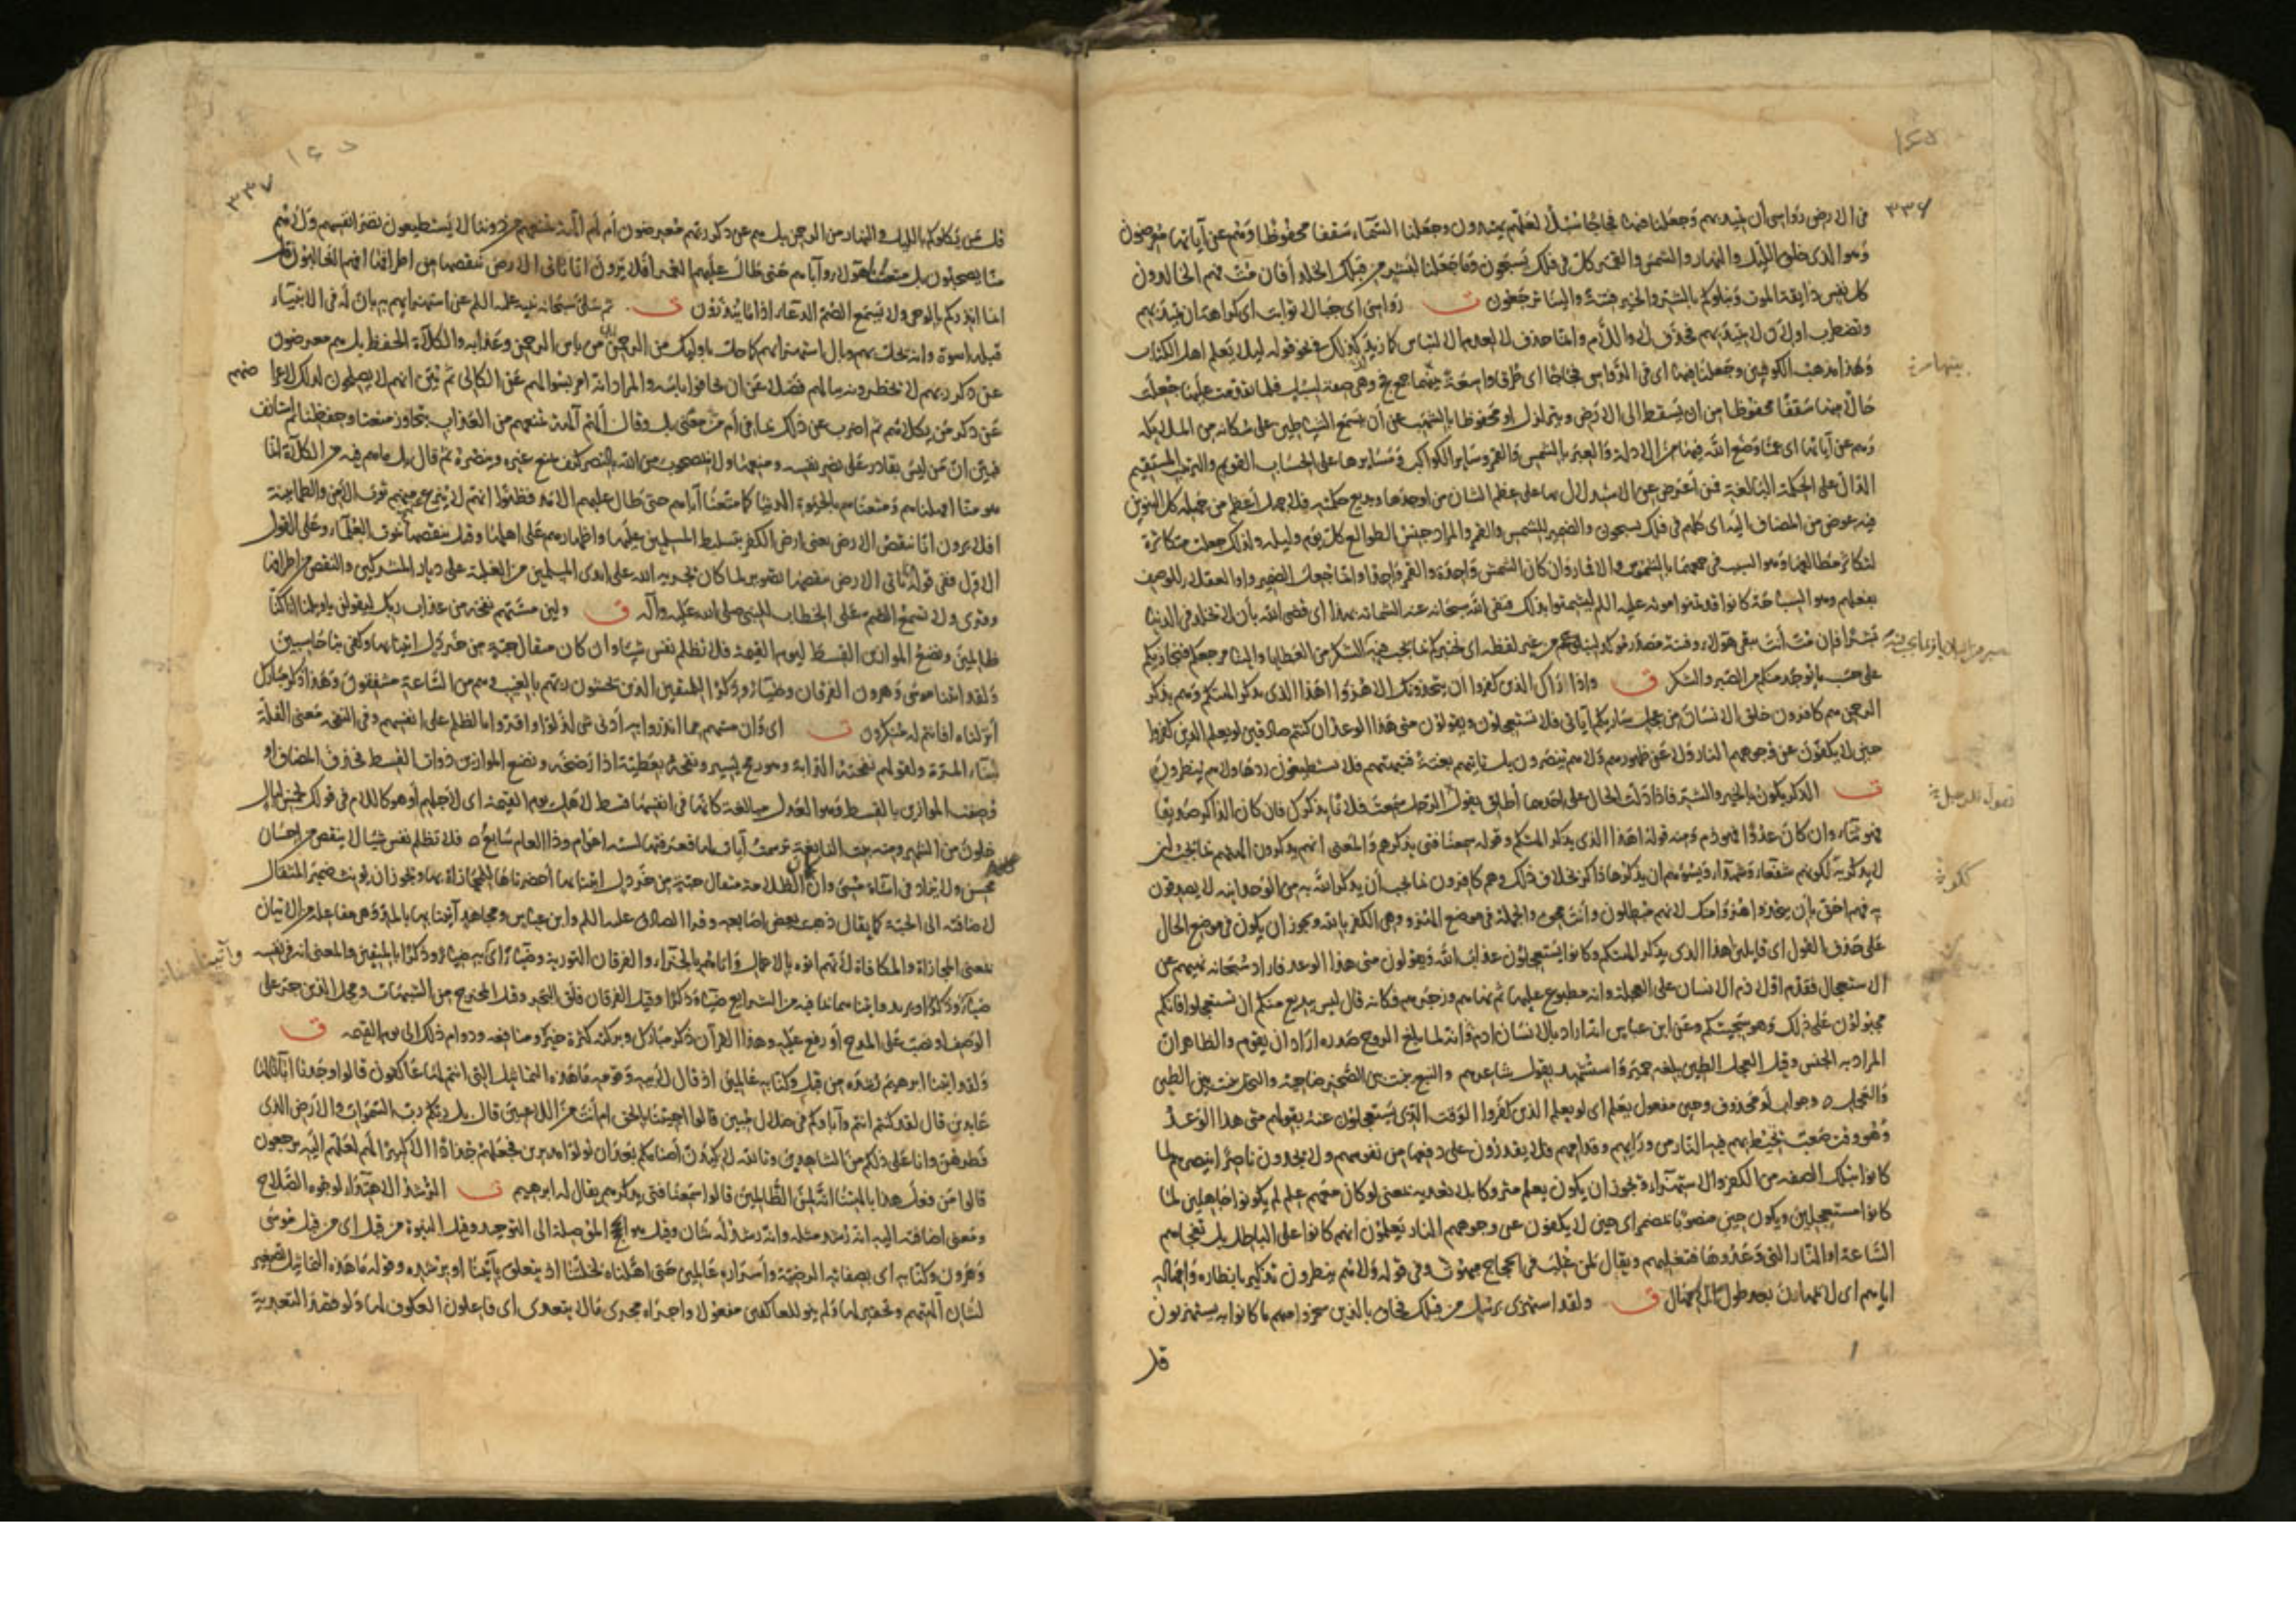 ١٤٥
٣٣٦
في الارض رواسي أن تميد بهم وجعلنا فيها فجاجا سبلا لعلهم يهتدون وجعلنا السماء سقفا محفوظا وهم عن آياتها معرضون
وهو الذي خلق الليل والنهار والشمس والقمر كل في فلك يسبحون وما جعلنا لبشر من قبلك الخلد أفان مت فهم الخالدون
كل نفس ذايقة الموت ونبلوكم بالشر والخير فتنة والينا ترجعون ق رواسي اي جبالا ثوابت اي كراهة ان تميد بهم
وتضطرب او لان لا تميد بهم فحذف لا واللام وانما حذف لا لعدم الالتباس كما زيد لذلك في نحو قوله ليلا يعلم اهل الكتاب
وهذا مذهب الكوفيين وجعلنا فيها اي في الرواسي فجاجا اي طرقا واسعة بينها جمع فج وهي صفة لسبل فلما تقدمت عليها جعلت
حالا منها سقفا محفوظا من ان يسقط الى الارض ويتزلزل او محفوظا بالشهب عن أن يتسمع الشياطين على سكانه من الملائكة
وهم عن آياتها اي عما وضع الله فيها من الادلة والعبر بالشمس والقمر وساير الكواكب ومسايرها على الحساب القويم والترتيب المستقيم
الدال على الحكمة البالغة فمن أعرض عن الاستدلال بها على عظم الشان من اوجدها وبديع حكمته فلا جهل أعظم من جهله كل التنوين
فيه عوض من المضاف اليه اي كلهم في فلك يسبحون والضمير للشمس والقمر والمراد جنس الطوالع كل يوم وليلة ولذلك جعلت متكاثرة
لتكاثر مطالعها وهو السبب في جمعهما بالشموس والاقمار وان كان الشمس واحدة والقمر واحدا وانما جعل الضمير واو العقلاء للوصف
بفعلهم وهو السباحة كانوا قد تمنوا موته عليه السلم ليشمتوا بذلك فنفى الله سبحانه عنه الشماتة بهذا اي قضى الله بأن لا نخلد في الدنيا
بشرا فان مت أنت يبقى هؤلاء وفتنة مصدر مؤكد لنبلوكم من غير لفظه اي نختبركم بما يجب فيه الشكر من العطايا والينا مرجعكم فنجازيكم
على حسب ما يوجد منكم من الصبر والشكر ق واذا رآك الذين كفروا ان يتخذونك الا هزوا اهذا الذي يذكر آلهتكم وهم بذكر
الرحمن هم كافرون خلق الانسان من عجل سأريكم آياتي فلا تستعجلون ويقولون متى هذا الوعد ان كنتم صادقين لو يعلم الذين كفروا
حين لا يكفون عن وجوههم النار ولا عن ظهورهم ولا هم ينصرون بل تاتيهم بغتة فتبهتهم فلا يستطيعون ردها ولا هم ينظرون
ق الذكر يكون بالخير والشر فاذا دلت الحال على احدهما أطلق يقول الرجل سمعت فلانا يذكرك فان كان الذاكر صديقا
فهو ثناء وان كان عدوا فهو ذم ومنه قوله اهذا الذي يذكر آلهتكم وقوله سمعنا فتى يذكرهم والمعنى انهم يذكرون آلهتهم بما يجب ان
لا يذكر به لكونهم شفعاء وشهداء ويسوءهم ان يذكرها ذاكر بخلاف ذلك وهم كافرون بما يجب أن يذكر الله به من الوحدانية لا يصدقون
به فهم احق بأن يتخذوا هزوا منك لانهم مبطلون وأنت محق والجملة في موضع الهزو وهي الكفر بالله ويجوز ان يكون في موضع الحال
على حذف القول اي قايلين اهذا الذي يذكر آلهتكم وكانوا يستعجلون عذاب الله ويقولون متى هذا الوعد فاراد سبحانه نهيهم عن
الاستعجال فقدم اولا ذم الانسان على العجلة وانه مطبوع عليها ثم نهاهم وزجرهم فكانه قال ليس ببديع منكم ان تستعجلوا فانكم
مجبولون على ذلك وهو سجيتكم وعن ابن عباس انه اراد بالانسان ادم وانه لما بلغ الروح صدره اراد ان يقوم والظاهر ان
المراد به الجنس وقيل العجل الطين بلغة حمير واستشهد بقول شاعرهم والنبع ينبت بين الصخر ضاحية والنخل ينبت بين الطين
والعجل وجواب لو محذوف وحين مفعول يعلم اي لو يعلم الذين كفروا الوقت الذي يستعجلون عنه بقولهم متى هذا الوعد
وهو وقت صعب تحيط بهم فيه النار من ورائهم وقدامهم فلا يقدرون على دفعها من نفوسهم ولا يجدون ناصرا ينصرهم لما
كانوا بتلك الصفة من الكفر والاستهزاء ويجوز ان يكون يعلم متروكا بلا تعدية بمعنى لو كان معهم علم لم يكونوا جاهلين لما
كانوا مستعجلين ويكون حين منصوبا بمضمر اي حين لا يكفون عن وجوههم النار يعلمون انهم كانوا على الباطل بل تفجأهم
الساعة او النار التي وعدوها فتغلبهم ويقال لمن غلب في الحجاج مبهوت وفي قوله ولا هم ينظرون تذكير بانظاره وامهاله
اياهم اي لا يمهلون بعد طول الامهال ق ولقد استهزئ برسل من قبلك فحاق بالذين سخروا منهم ما كانوا به يستهزؤن
قل
٣٣٧
قل من يكلؤكم بالليل والنهار من الرحمن بل هم عن ذكر ربهم معرضون أم لهم آلهة تمنعهم من دوننا لا يستطيعون نصر انفسهم ولا هم
منا يصحبون بل متعنا هؤلاء وآباءهم حتى طال عليهم العمر أفلا يرون انا ناتي الارض ننقصها من اطرافها افهم الغالبون قل
انما انذركم بالوحي ولا يسمع الصم الدعاء اذا ما ينذرون ق ثم سلى سبحانه نبيه عليه السلم عن استهزائهم به بان له في الانبياء
قبله اسوة وانه يحل بهم وبال استهزائهم كما حل باوليك من الرحمن من بأس الرحمن وعذابه والكلاءة الحفظ بل هم معرضون
عن ذكر ربهم لا يخطرونه ببالهم فضلا عن ان يخافوا بأسه والمراد انه امر بسؤالهم عن الكالي ثم بين انهم لا يصلحون لذلك لاعراضهم
عن ذكر من يكلؤهم ثم اضرب عن ذلك بما في أم من معنى بل وقال ألهم آلهة تمنعهم من العذاب يتجاوز منعنا وحفظنا ثم استانف
فبين ان من ليس بقادر على نصر نفسه ومنعها ولا بمصحوب من الله بالنصر كيف يمنع غيره وينصره ثم قال بل ما هم فيه من الكلاءة انما
هو منا امهلناهم ومتعناهم بالحيوة الدنيا كما متعنا آباءهم حتى طال عليهم الامد فظنوا انهم لا ينزع عنهم ثوب الامن والطمانينة
افلا يرون انا ننقص الارض يعني ارض الكفر بتسليط المسلمين عليها واظهارهم على اهلها وقيل ننقصها بموت العلماء وعلى القول
الاول ففي قوله ناتي الارض ننقصها تصوير لما كان يجريه الله على ايدي المسلمين من الغلبة على ديار المشركين والنقص من اطرافها
وقرئ ولا تسمع الصم على الخطاب للنبي صلى الله عليه وآله ق ولين مستهم نفحة من عذاب ربك ليقولن ياويلنا انا كنا
ظالمين ونضع الموازين القسط ليوم القيمة فلا تظلم نفس شيئا وان كان مثقال حبة من خردل اتينا بها وكفى بنا حاسبين
ولقد اتينا موسى وهرون الفرقان وضياء وذكرا للمتقين الذين يخشون ربهم بالغيب وهم من الساعة مشفقون وهذا ذكر مبارك
أنزلناه افانتم له منكرون ق اي وان مستهم مما انذروا به أدنى شيء لذلوا واقروا بالظلم على انفسهم وفي النفحة معنى القلة
لبناء المرة ولقولهم نفحته الدابة وهو رمح يسير ونفحه بعطية اذا رضخه ونضع الموازين ذوات القسط فحذف المضاف او
وصفت الموازين بالقسط وهو العدل مبالغة كانها في انفسها قسط لاهل يوم القيمة اي لاجلهم أو هو كاللام في قولك لخمس ليال
خلون من الشهر ومنه بيت النابغة ترسمت آيات لها فعرفتها لستة اعوام وذا العام سابع فلا تظلم نفس شيئا لا ينقص من احسان
محسن ولا يزاد في اساءة مسيء وان كان الظلامة مثقال حبة من خردل اتينا بها أحضرناها للمجازاة بها ويجوز ان يؤنث ضمير المثقال
لاضافته الى الحبة كما يقال ذهبت بعض اصابعه وقرأ الصادق عليه السلم وابن عباس ومجاهد آتينا بها بالمد وهي مفاعلة من الاتيان
بمعنى المجازاة والمكافاة لأنهم اتوه بالاعمال واتاهم بالجزاء والفرقان التورية وضياء اي به ضياء وذكرا للمتقين والمعنى انه في نفسه
ضياء وذكر او يريد واتيناهما بما فيه من الشرايع ضياء وذكرا وقيل الفرقان فلق البحر وقيل المخرج من الشبهات ومحل الذين جر على
الوصف او نصب على المدح أو رفع عليه وهذا القرآن ذكر مبارك وبركته كثرة خيره ومنافعه ودوام ذلك الى يوم القيمة ق
ولقد اتينا ابرهيم رشده من قبل وكنا به عالمين اذ قال لأبيه وقومه ما هذه التماثيل التي انتم لها عاكفون قالوا وجدنا آباءنا لها
عابدين قال لقد كنتم انتم وآباؤكم في ضلال مبين قالوا اجئتنا بالحق ام أنت من اللاعبين قال بل ربكم رب السموات والارض الذي
فطرهن وانا على ذلكم من الشاهدين وتالله لاكيدن أصنامكم بعد أن تولوا مدبرين فجعلهم جذاذا الا كبيرا لهم لعلهم اليه يرجعون
قالوا من فعل هذا بالهتنا انه لمن الظالمين قالوا سمعنا فتى يذكرهم يقال له ابرهيم ق الرشد الاهتداء لوجوه الصلاح
ومعنى اضافته اليه انه رشد مثله وانه رشد له شان وقيل هو الحجج الموصلة الى التوحيد وقيل النبوة من قبل اي من قبل موسى
وهرون وكنا به اي بصفاته المرضية وأسراره عالمين حتى اهلناه لخلتنا اذ يتعلق بآتينا او برشده وقوله ما هذه التماثيل تصغير
لشان آلهتهم وتحقير لها ولم ينو للعاكفين مفعولا واجراه مجرى ما لا يتعدى اي فاعلون العكوف لها ولو قصد التعدية